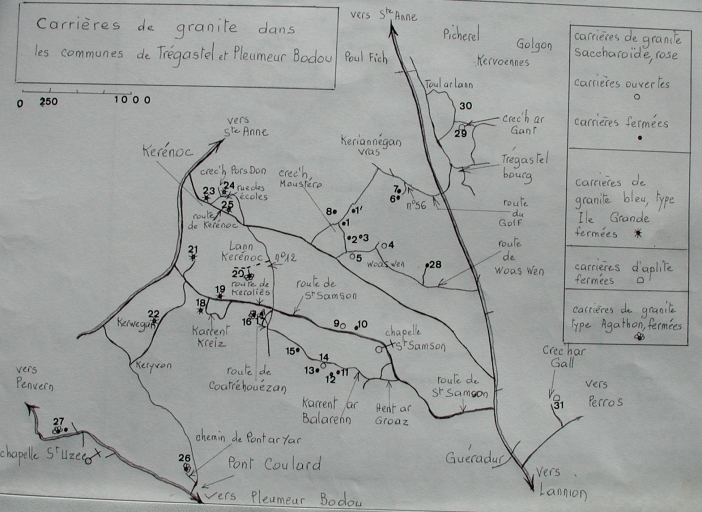 Carrières de granite dans
les communes de Trégastel et Pleumeur Bodou
0 250 1000
vers Ste Anne
Picherel
Golgon
Kervoennes
Poul Fich
Toul ar lann
30
29
crec'h ar
Gant
Trégastel
bourg
carrières de granite
Saccharoïde, rose
carrières ouvertes
carrières fermées
carrières de
granite bleu, type
Ile Grande
fermées
carrières d'aplite
fermées
carrières de granite
type Agathon, fermées
vers
Ste Anne
Kerénoc
crec'h Pors Don
23
24
rue des
écoles
25
route
de Kerénoc
crec'h
Moustéro
Keriannégan
vras
7
6
n°56
route
du
Golf
8
1'
1
2
3
4
5
Woas Wen
28
route
de
Woas Wen
21
Lann
Kerénoc
n°12
20
route de
Keraliès
19
18
route de
St Samson
22
Kerwegan
Karrent
Kreiz
16
9
10
chapelle
St Samson
Keryvon
15
14
13
12
11
route de
Coatréhouézan
Karrent ar
Balarenn
Hent ar
Groaz
route de
St Samson
Crec'h ar
Gall
31
vers
Perros
vers
Penvern
27
chapelle St Uzec
chemin de Pont ar Yar
26
Pont Coulard
vers Pleumeur Bodou
Guéradur
vers
Lannion